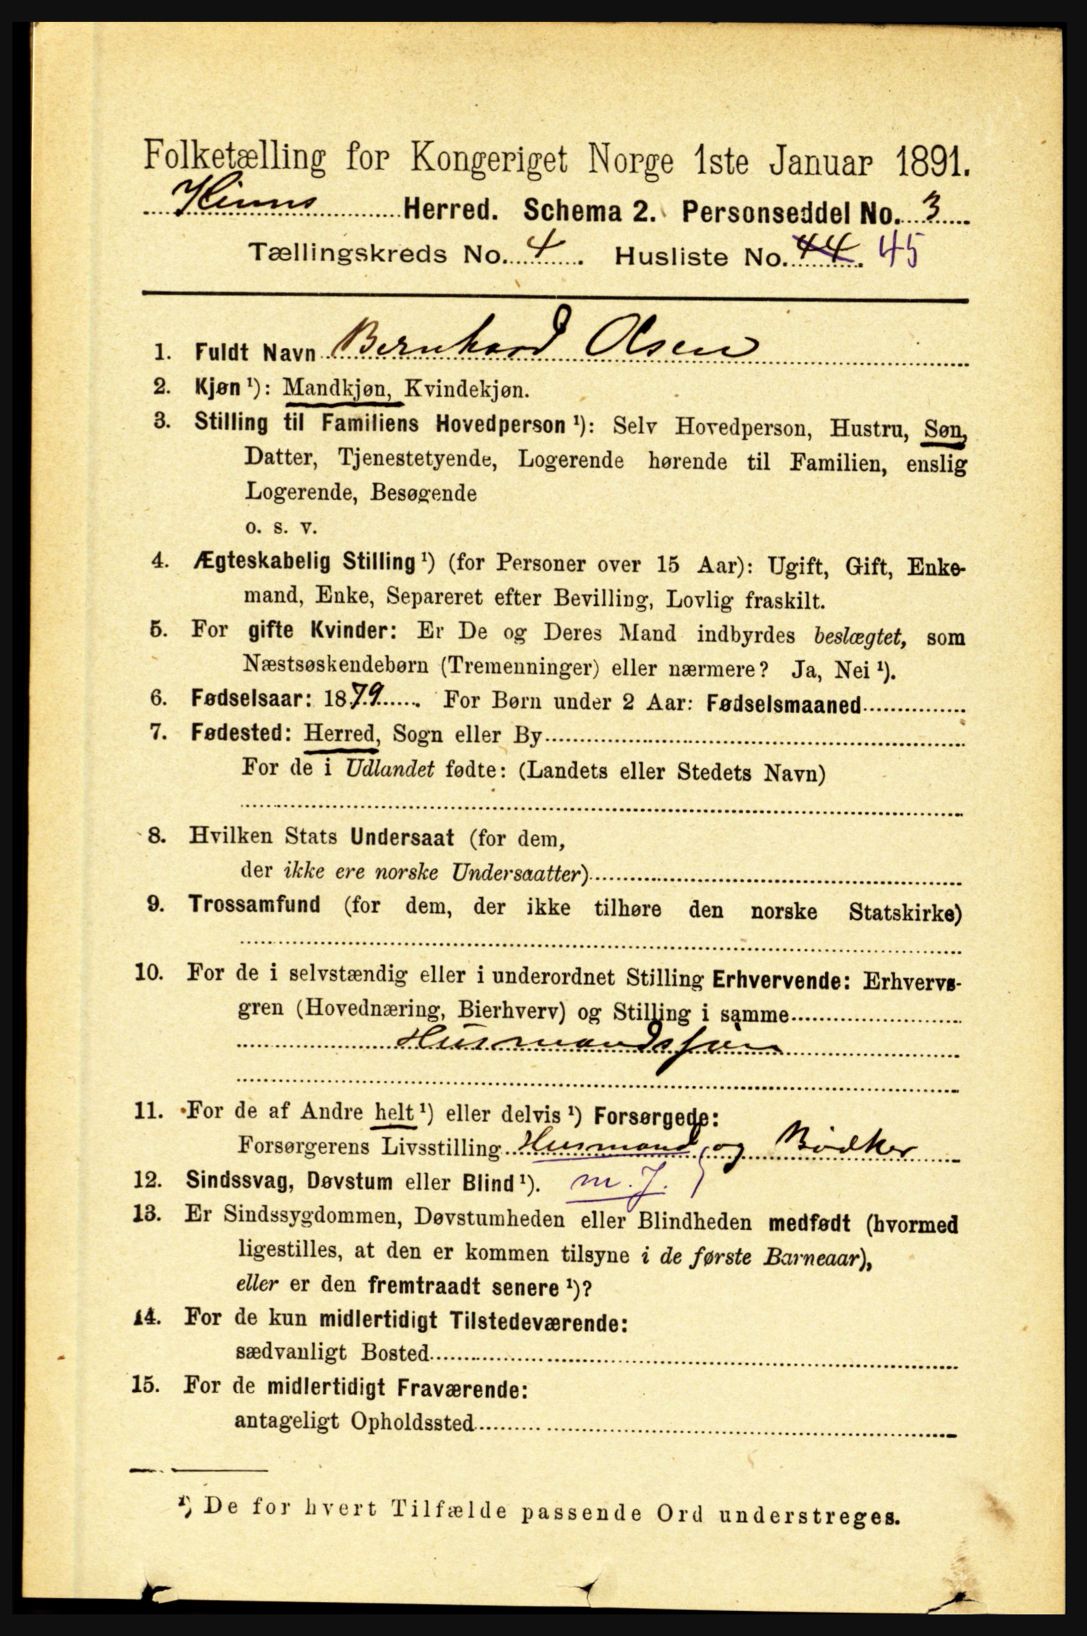 Folketælling for Kongeriget Norge 1ste Januar 1891.
Kinns Herred. Schema 2. Personseddel No. 3
Tællingskreds No. 4. Husliste No. 44. 45
1. Fuldt Navn Bernhard Olsen
2. Kjøn ¹): Mandkjøn, Kvindekjøn.
3. Stilling til Familiens Hovedperson ¹): Selv Hovedperson, Hustru, Søn,
Datter, Tjenestetyende, Logerende hørende til Familien, enslig
Logerende, Besøgende
o. s. v.
4. Ægteskabelig Stilling ¹) (for Personer over 15 Aar): Ugift, Gift, Enke-
mand, Enke, Separeret efter Bevilling, Lovlig fraskilt.
5. For gifte Kvinder: Er De og Deres Mand indbyrdes beslægtet, som
Næstsøskendebørn (Tremenninger) eller nærmere? Ja, Nei ¹).
6. Fødselsaar: 1879. For Børn under 2 Aar: Fødselsmaaned
7. Fødested: Herred, Sogn eller By
For de i Udlandet fødte: (Landets eller Stedets Navn)
8. Hvilken Stats Undersaat (for dem,
der ikke ere norske Undersaatter)
9. Trossamfund (for dem, der ikke tilhøre den norske Statskirke)
10. For de i selvstændig eller i underordnet Stilling Erhvervende: Erhvervs-
gren (Hovednæring, Bierhverv) og Stilling i samme
Husmandssøn
11. For de af Andre helt ¹) eller delvis ¹) Forsørgede:
Forsørgerens Livsstilling Husmand og Bødker
12. Sindssvag, Døvstum eller Blind ¹). m. J.
13. Er Sindssygdommen, Døvstumheden eller Blindheden medfødt (hvormed
ligestilles, at den er kommen tilsyne i de første Barneaar),
eller er den fremtraadt senere ¹)?
14. For de kun midlertidigt Tilstedeværende:
sædvanligt Bosted
15. For de midlertidigt Fraværende:
antageligt Opholdssted
¹) De for hvert Tilfælde passende Ord understreges.